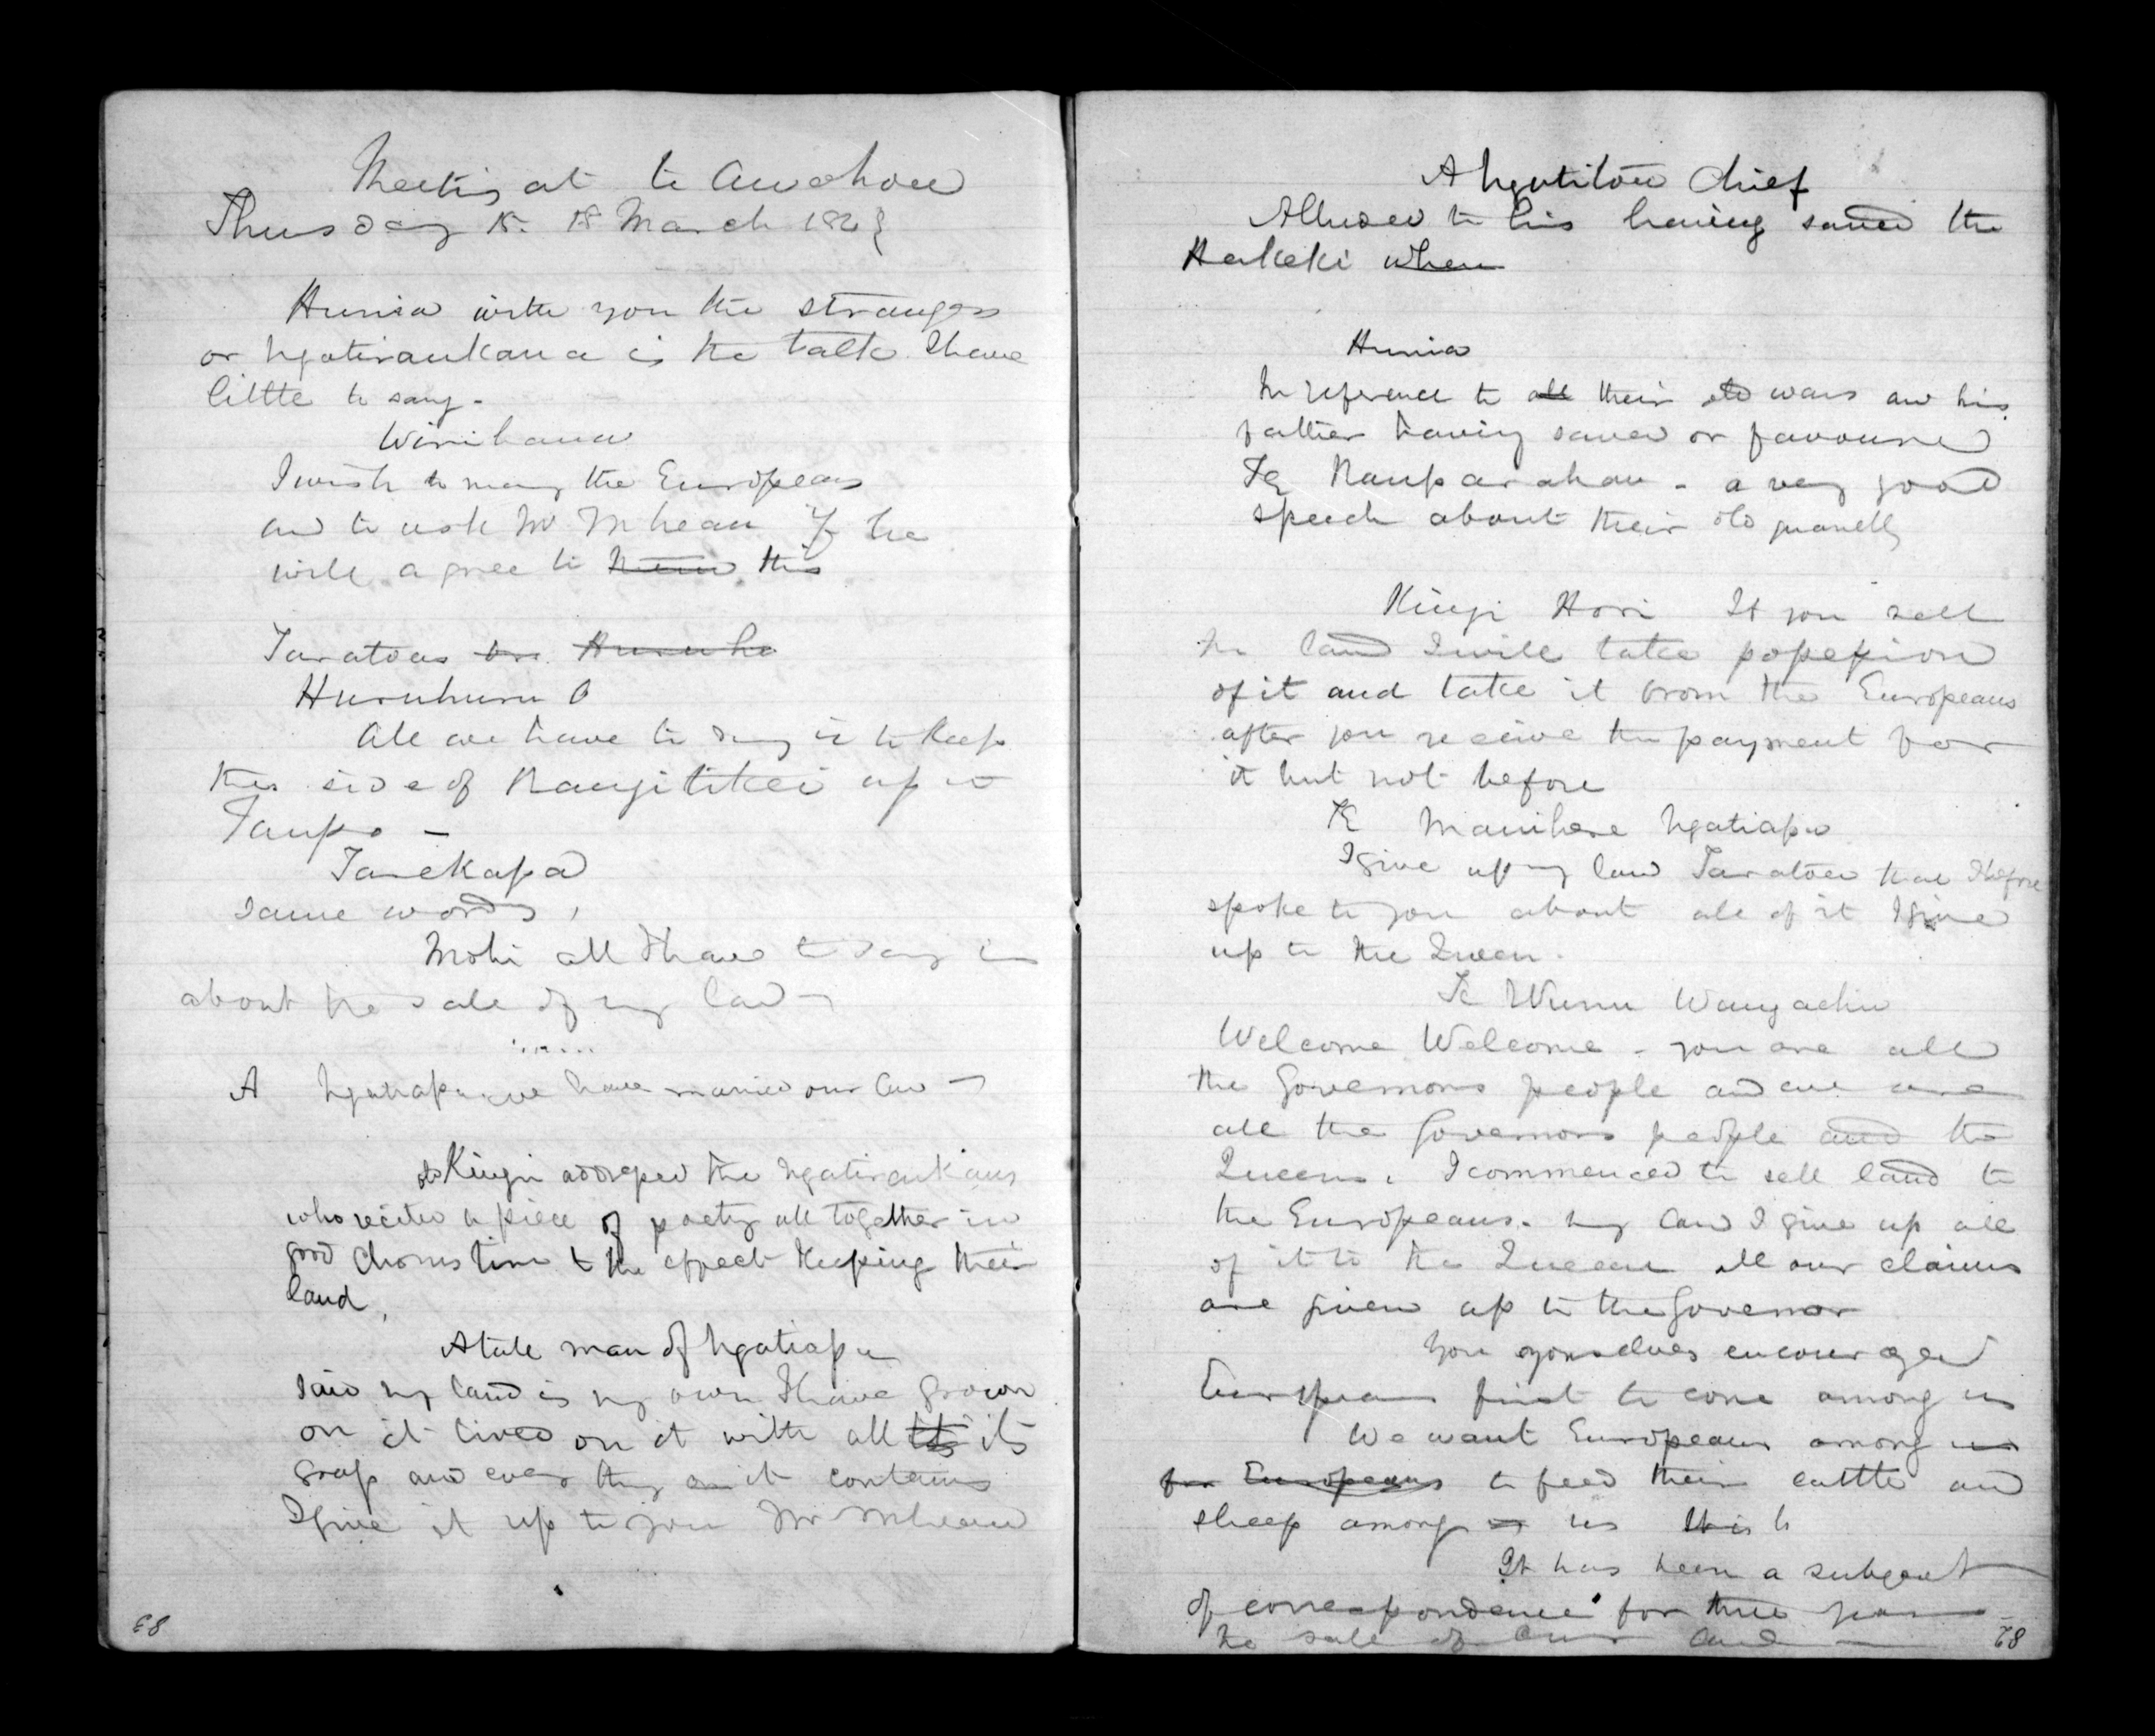 Meeting at te Awahou
Thursday 15. 15 March 186
Hunia with you the strangers
or Ngatiraukawa is the talk I have
little to say -
Wirihana
I wish to marry the Europeans
and to ask Mr McLean if he
will agree to this
Taratoas
Huruhuru
All we have to say is to keep
this side of Rangitikei up to
Taupo -
Tarekapa
same words,
Mohi all I have to say is
about the sale of my land -
A Ngatiapa we have married our land -
Kingi addressed the Ngatiraukaus
who recited a piece of poetry all together in
good chorus time to the effect Keeping their
land,
A tall man of Ngatiapa
said my land is my own I have grown
on it lived on it with all its its
grass and every thing it contains
I give it up to you Mr McLean
68
A Ngatitoa Chief
Alluded to his having saved the
Hakeke when
Hunia
In reference to all their old wars and his
father having saved or favoured
Te Rauparahau - a very good
speech about their old quarrells
Kingi Hori If you sell
the land I will take possession
of it and take it from the Europeans
after you receive the payment for
it but not before
Te Manihera Ngatiapa
I give up my land Taratoa that I before
spoke to you about all of it I give
up to the Queen.
Te Wunu Wangaehu
Welcome Welcome - you are all
the Governors people and we are
all the Governors people and the
Queens. I commenced to sell land to
the Europeans. my land I give up all
of it to the Queen all our claims
are given up to the Governor
You yourselves encouraged
Europeans first to come among us
We want Europeans among us
for Europeans to feed their cattle and
sheep among us this is
It has been a subject
of correspondence for three years
the sale of our land -
68